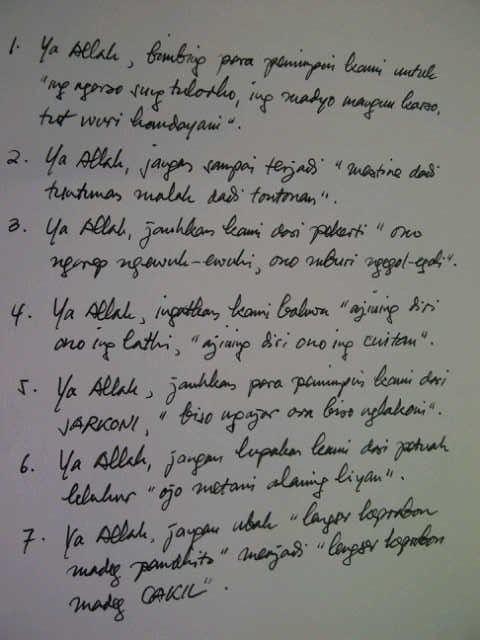 1. Ya Allah, bimbing para pemimpin kami untuk
"ing ngarso sung tulodho, ing madyo mangun karso,
tut wuri handayani".
2. Ya Allah, jangan sampai terjadi "mestine dadi
tuntunan malah dadi tontonan".
3. Ya Allah, jauhkan kami dari pekerti "ono
ngarep ngewuh-ewuhi, ono mburi ngegol-egoli".
4. Ya Allah, ingatkan kami bahwa "ajining diri
ono ing lathi, "ajining diri ono ing cuitan".
5. Ya Allah, jauhkan para pemimpin kami dari
JARKONI, "biso ngajar ora biso nglakoni".
6. Ya Allah, jangan lupakan kami dari petuah
leluhur "ojo metani alaning liyan".
7. Ya Allah, jangan ubah "lengser keprabon
madeg pandhito" menjadi "lengser keprabon
madeg CAKIL".